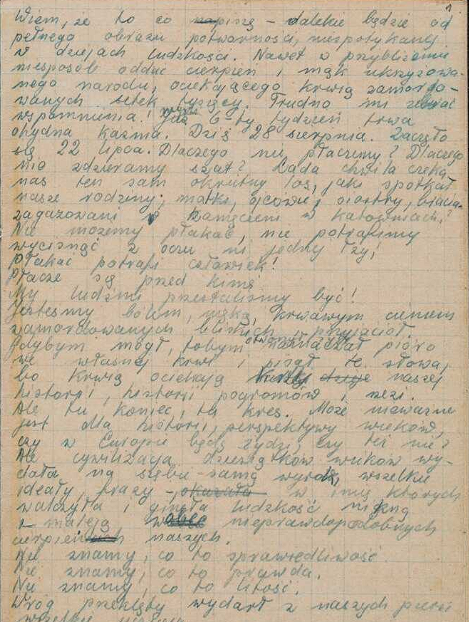 1.
Wiem, że to co piszę – dalekie będzie od
pełnego obrazu potworności, niespotykanej
w dziejach ludzkości. Nawet w przybliżeniu
niesposób oddać cierpień i mąk ukrzyżowa-
nego narodu, ociekającego krwią zamordo-
wanych setek tysięcy. Trudno mi zebrać
wspomnienia! Już 6-ty tydzień trwa
ohydna kaźnia. Dziś 28 sierpnia. Zaczęło
się 22 lipca. Dlaczego nie płaczemy? Dlaczego
nie zdzieramy szat? Lada chwila czeka
nas ten sam okrutny los, jaki spotkał
nasze rodziny: matki, ojcowie, siostry, bracia
zagazowani w katowniach,
Nie możemy płakać, nie potrafimy
wycisnąć z oczu ni jednej łzy,
Płakać potrafi człowiek!
Płacze się przed kimś
My ludźmi przestaliśmy być!
Jesteśmy bólem, męką, krwawym cieniem
zamordowanych bliskich, przyjaciół.
Gdybym mógł, tobym maczał pióro
we własnej krwi i pisał te słowa,
bo krwią ociekają naszej
historii, historii pogromów i rzezi.
Ale tu koniec, tu kres. Może nieważne
jest dla historii, perspektywy wieków,
czy w Europie będą żydzi, czy też nie!
Ale cywilizacja dziesiątków wieków wy-
dała na siebie samą wyrok, wszelkie
ideały, frazy – w imię których
walczyła i ginęła ludzkość niczem są
nieprawdopodobnych
cierpień naszych.
Nie znamy, co to sprawiedliwość
Nie znamy, co to prawda.
Nie znamy, co to litość.
Wróg przeklęty wydarł z naszych piersi
wszelkie